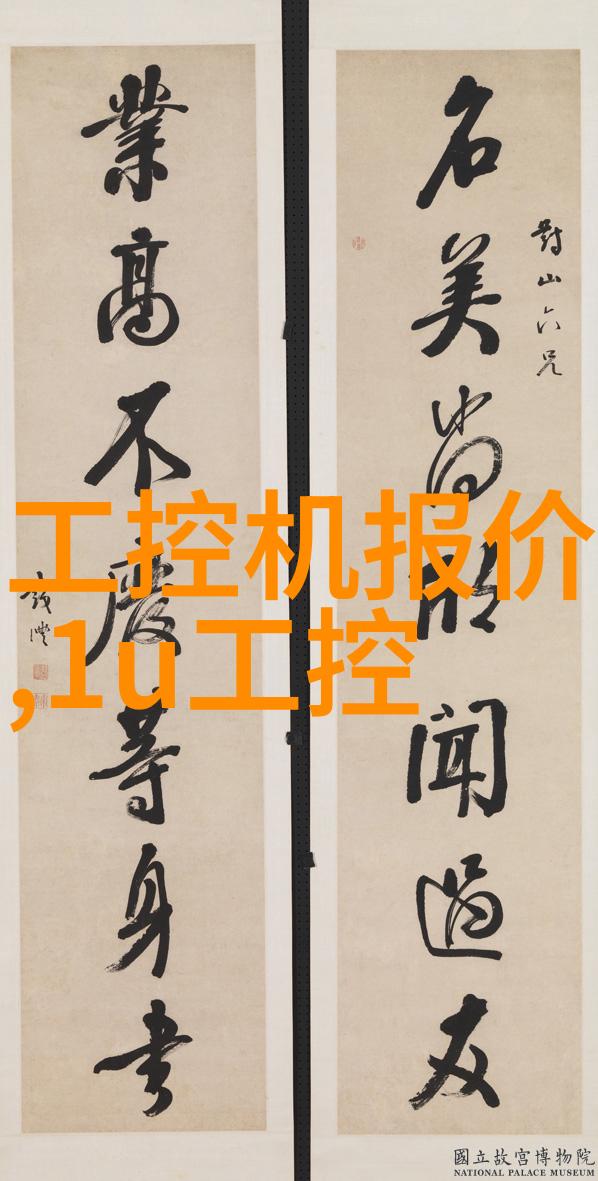 名美尚欣聞過友
對山六兄
業高不廢等身書
錢灃
工控机报价
,1u工控
國立故宮博物院
NATIONAL PALACE MUSEUM